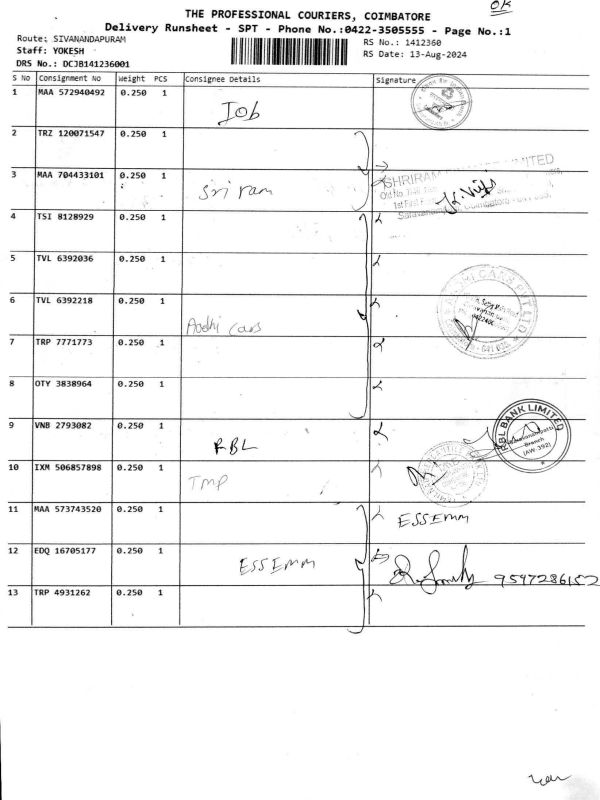 OK
THE PROFESSIONAL COURIERS, COIMBATORE
Delivery Runsheet - SPT - Phone No.:0422-3505555 - Page No.:1
Route: SIVANANDAPURAM
RS No.: 1412360
Staff: YOKESH
RS Date: 13-Aug-2024
DRS No.: DCJB141236001
S No Consignment No Weight PCS Consignee Details Signature
1 MAA 572940492 0.250 1
Job
2 TRZ 120071547 0.250 1
3 MAA 704433101 0.250 1
Sri ram
SHRIRAM LIMITED
4 TSI 8128929 0.250 1
5 TVL 6392036 0.250 1
6 TVL 6392218 0.250 1
Aadhi cars
AADHI CARS PVT LTD
7 TRP 7771773 0.250 1
8 OTY 3838964 0.250 1
9 VNB 2793082 0.250 1
RBL
RBL BANK LIMITED
Branch
(AW 392)
10 IXM 506857898 0.250 1
TMP
11 MAA 573743520 0.250 1
ESSEMM
12 EDQ 16705177 0.250 1
ESSEMM
9597286152
13 TRP 4931262 0.250 1